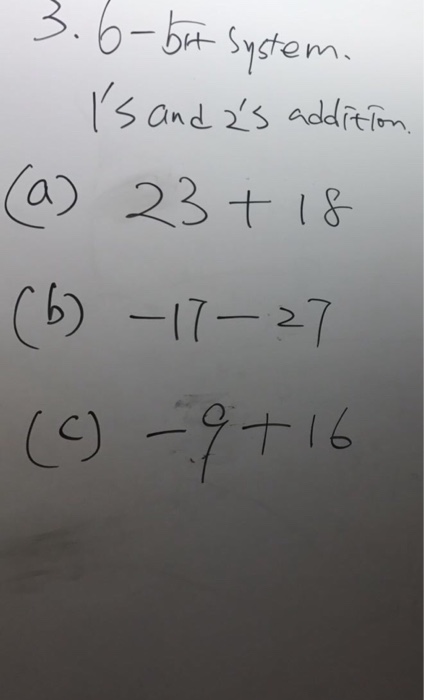 3. 6-bit System.
1's and 2's addition.
(a) 23 + 18
(b) -17 - 27
(c) -9 + 16